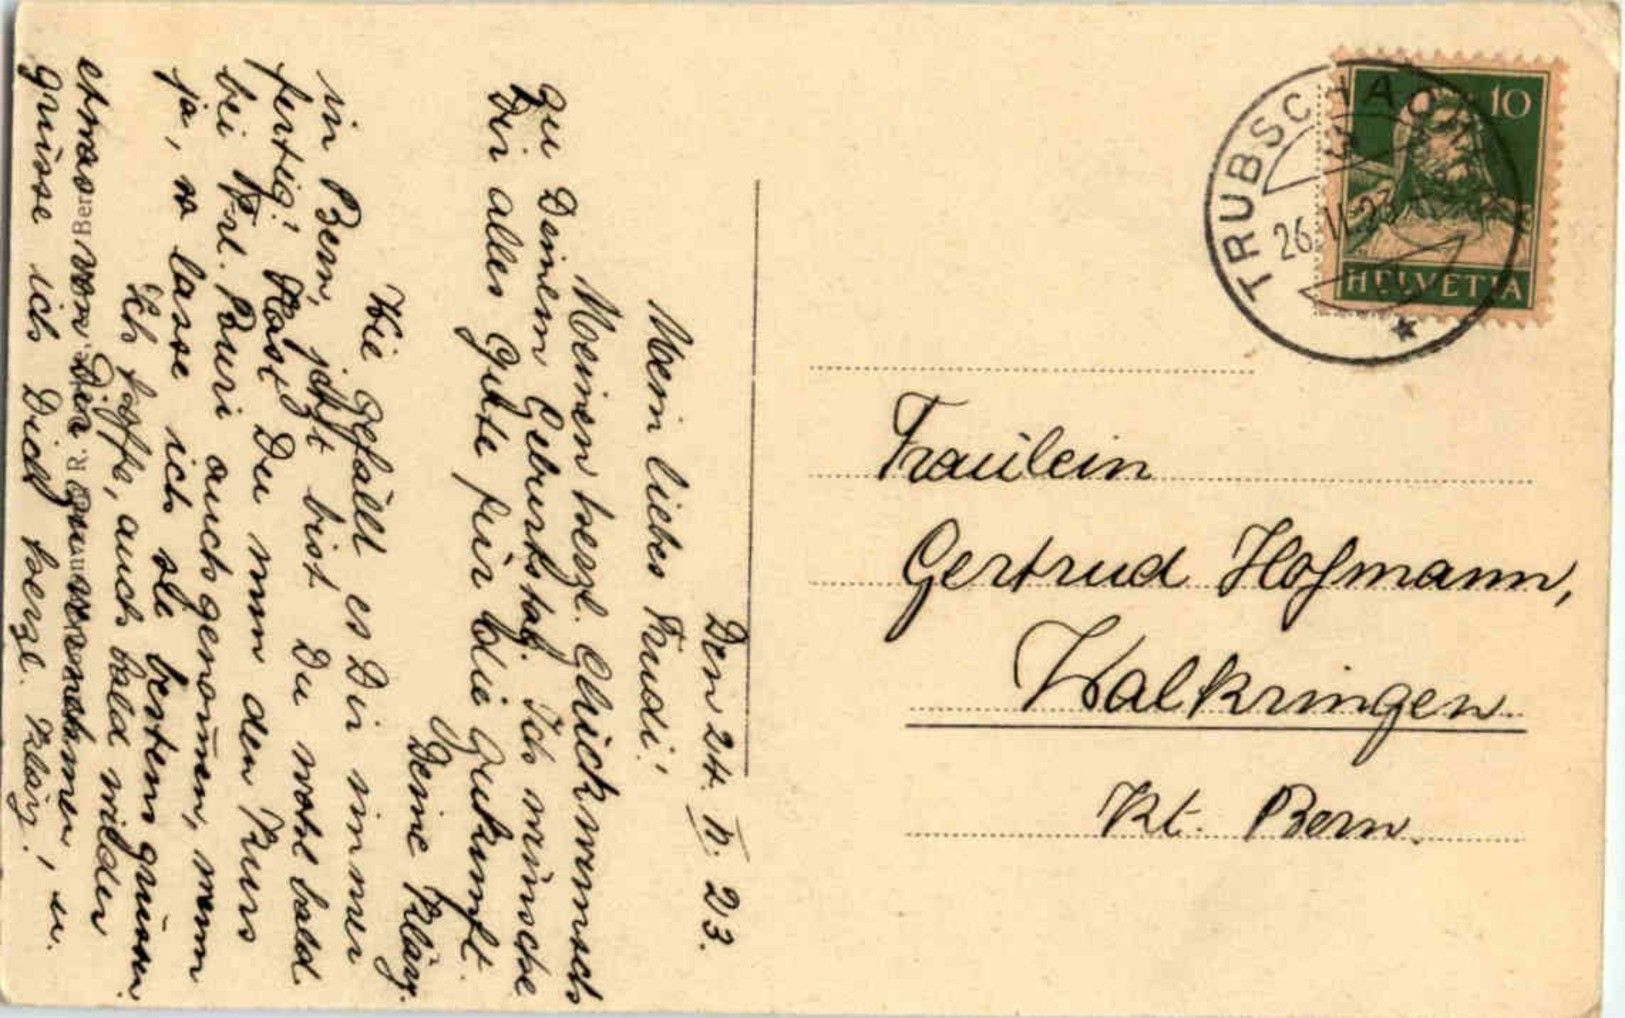 Den 24. II. 23.
Mein liebes Trudi!
Meinen herzl. Glückwunsch
zu Deinem Geburtstag. Ich wünsche
Dir alles Gute für die Zukunft.
Deine Kläry.
Wie gefällt es Dir immer
in Bern, jetzt bist Du wohl bald
fertig! Hast Du nun den Kurs
bei Frl. auch genom̄en, wenn
ja, so lasse ich sie bestens grüssen.
Ich hoffe, auch bald wieder
etwas von Dir zu vernehmen, u.
grüsse ich Dich herzl. Kläry!
TRUBSCHACHEN
26. II. 23
10
HELVETIA
Fraülein
Gertrud Hofmann,
Walkringen.
Kt. Bern.